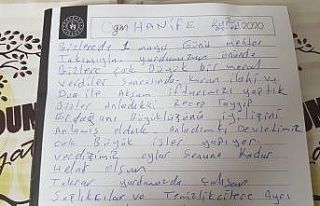 Ogan HANİFE 2020
Bizlerde 1 mayıs Günü mehter
Takımıyla yurdumuzun önünde
Bizlere çok Büyük bir moral
verdiler sonrasında kuran ilahi ve
Dua ile Akşam iftarımızı yaptık
Bizler Anladıkki Recep Tayyip
Erdoğanı Büyüklüğünü iyiliğini
Anlamış olduk. Anladımki Devletimiz
çok Büyük işler yapıyor.
verdiğimiz oylar Sonuna Kadar
Helal olsun
Tekrar yurdumuzda çalışan
Sağlıkçılar ve Temizlikcilere Ayrı